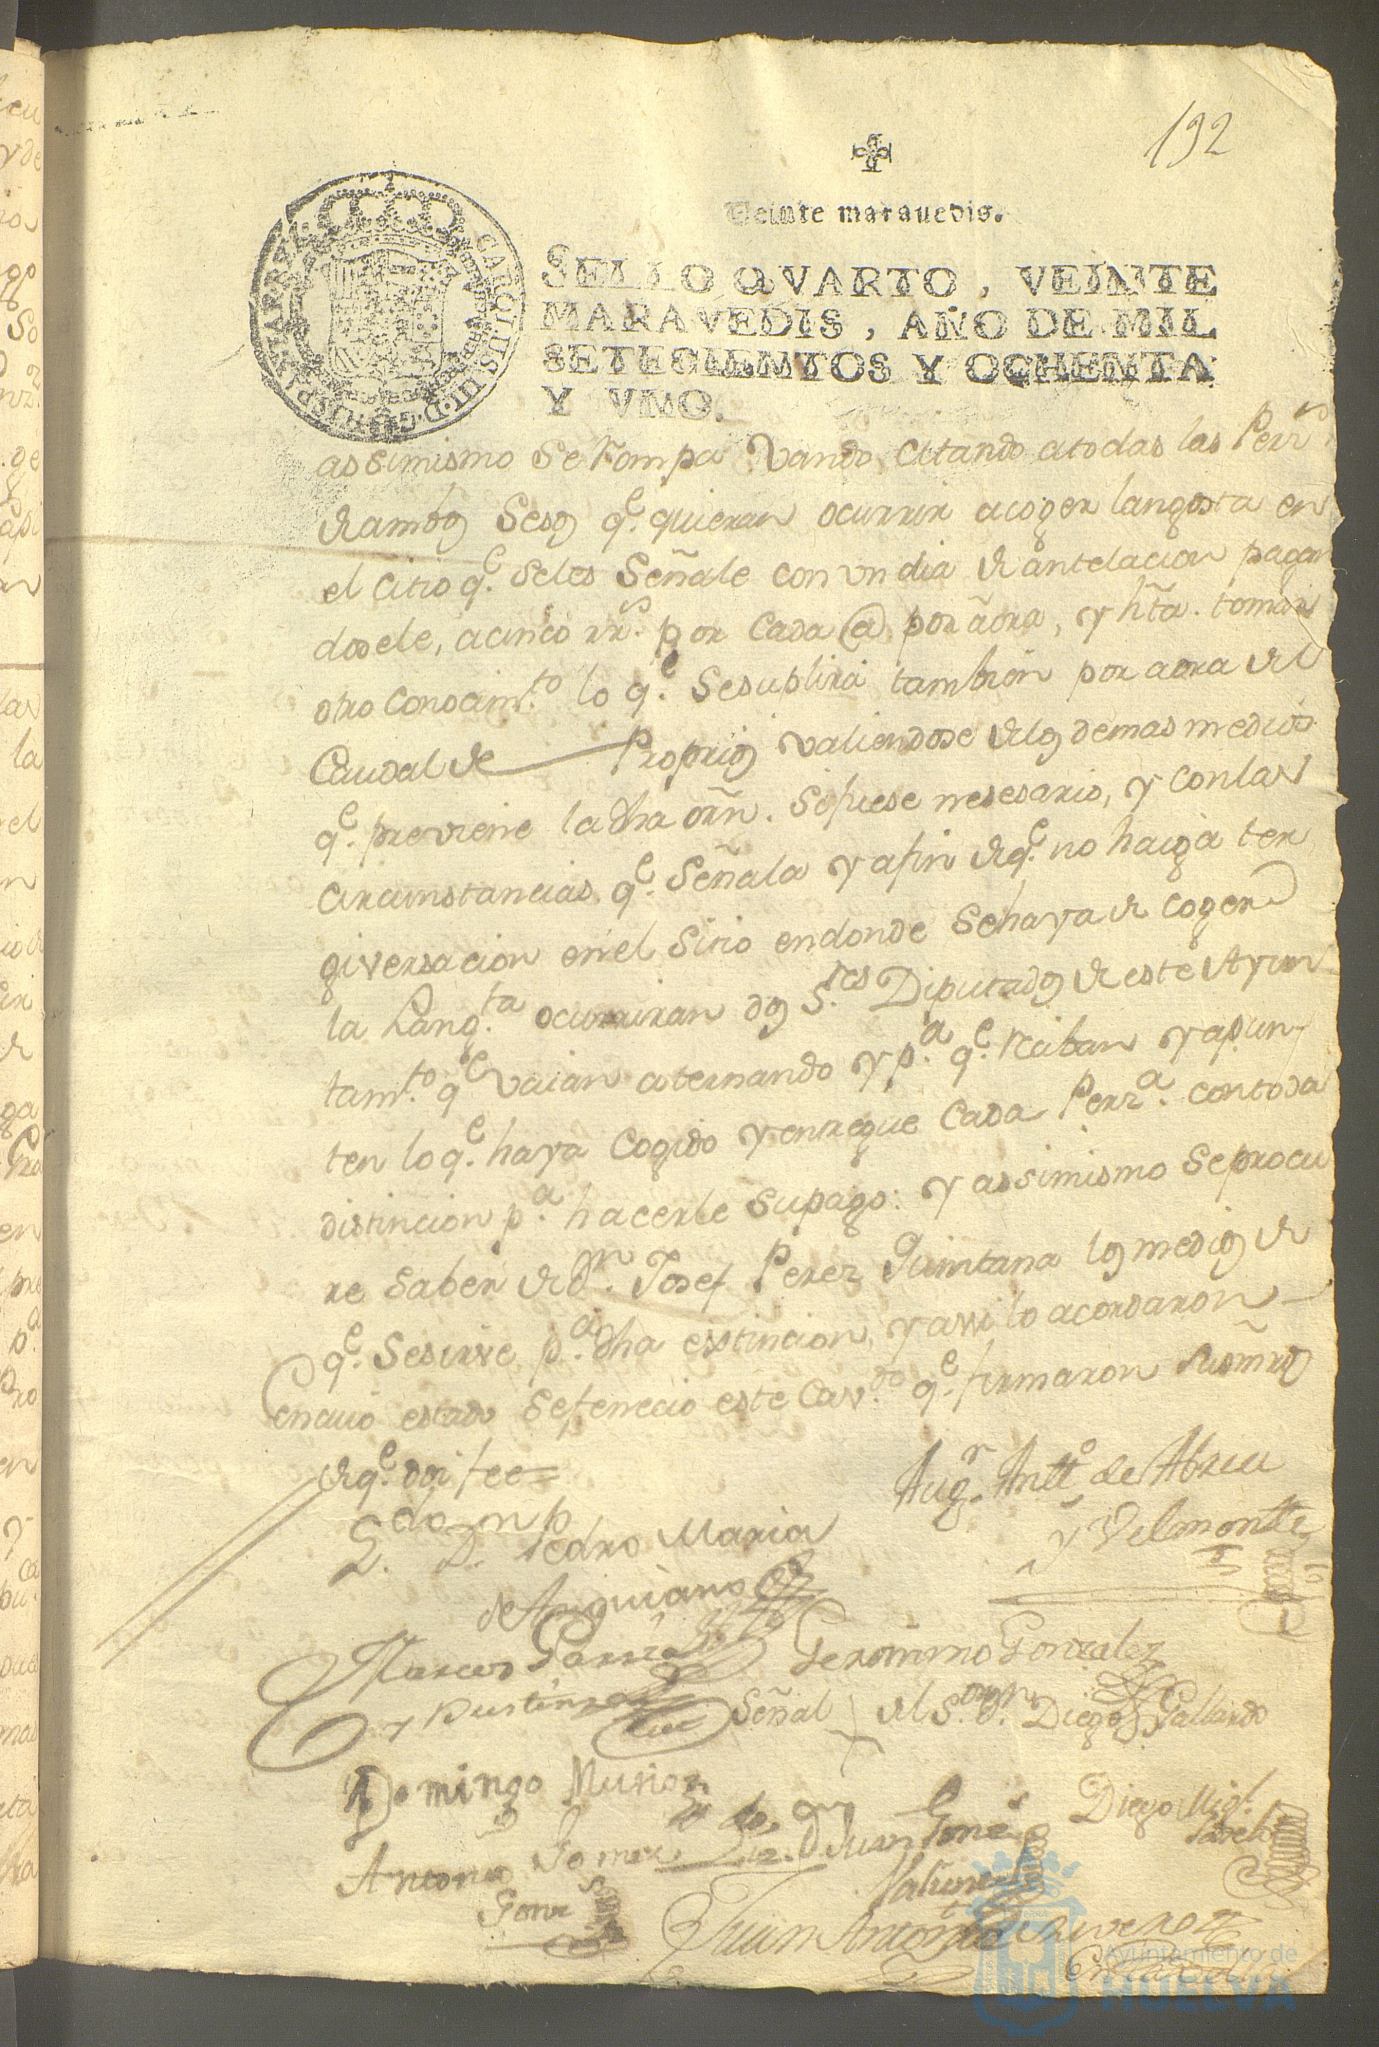 192
Veinte maravedis.
SELLO QVARTO, VEINTE
MARAVEDIS, AÑO DE MIL
SETECIENTOS Y OCHENTA
Y VNO.
CAROLUS III D G HISP
assimismo se rompa Vando, citando atodas las Perrs
de ambos Secsos qe. quieran ocurrir acoger langosta en
el citio qe. seles señale con un dia de antelacion pagan
dosele, acinco rrs. por cada @ por aora, y hta. tomar
otro conocimto. lo qe. sesuplirá tambien por aora del
Caudal de Proprios valiendose delos demas medios
qe. previene la dha orñ. sifuese nesesario, y conlas
circunstancias qe. señala y afin de qe. no haiga ter
giversacion en el sitio endonde sehaya de coger
la Langta. ocurriran dos Sres Diputados de este Ayun
tamto. qe vaian alternando y pa. qe. reciban y apun-
ten lo qe. haya cogido y entregue cada Perza. contoda
distincion pa. hacerle supago: y assimismo seprocu
re saber de Dn. Josef Perez Quintana los medios de
qe. sesirve pa. dha extincion, y assi lo acordaron
en cuio estado sefenecio este Cavdo. qe. firmaron sus mrds
de qe. doi fee=
Ldo. Dn. Pedro Maria
de Anguiano
Augn. Antto. de Abreu
y Velmonte
Marcos Garcia
y
Geronimo Gonzalez
Señal del Sor. Dn. Diego Gallardo
Domingo Muñoz
Diego Migl.
Antonio Gomez
Lizdo. Dn Juan
Juan Antonio
Ayuntamiento de
HUELVA